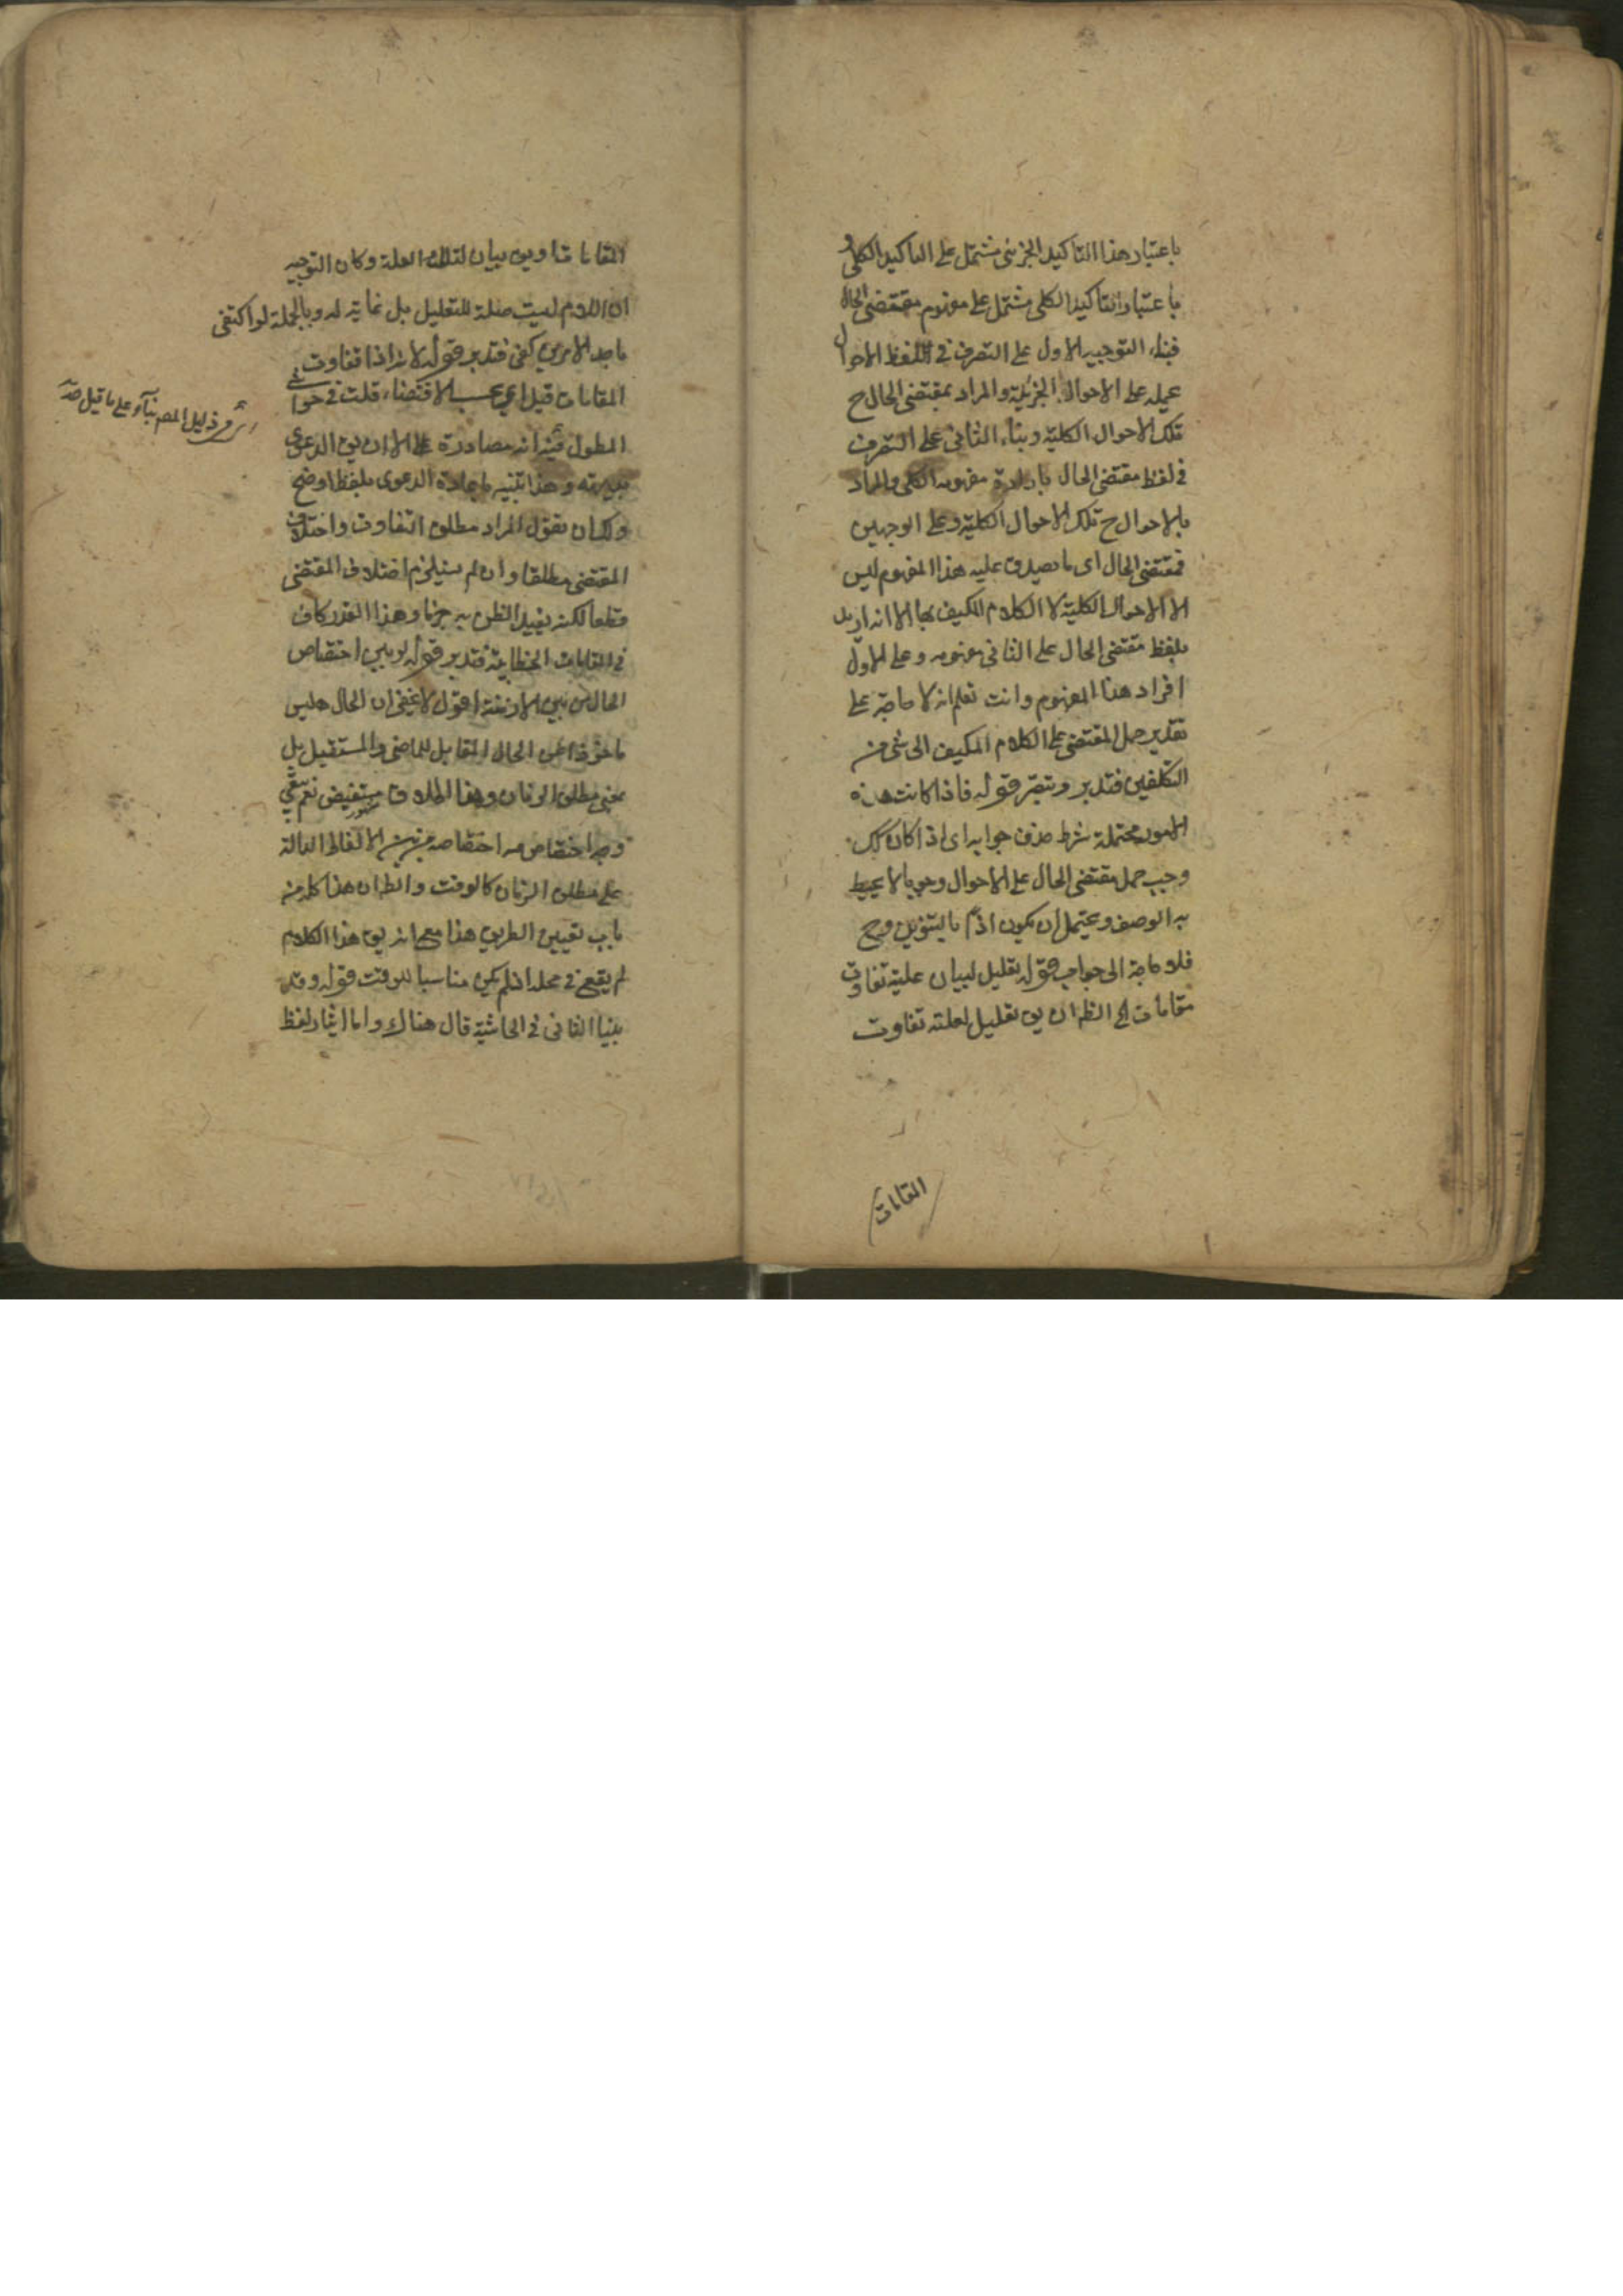 باعتبار هذا التاكيد الجزئى مشتمل على التاكيد الكلى و
باعتبار التاكيد الكلى مشتمل على مفهوم مقتضى الحال
فبناء التوجيه الاول على التصرف فى اللفظ الاحوال
بحمله على الاحوال الجزئية والمراد بمقتضى الحال ح
تلك الاحوال الكلية وبناء الثانى على التصرف
فى لفظ مقتضى الحال بارادة مفهومه الكلى والمراد
بالاحوال ح تلك الاحوال الكلية وعلى الوجهين
فمقتضى الحال اى ما يصدق عليه هذا المفهوم ليس
الا الاحوال الكلية لا الكلام المكيف بها الا انه اريد
بلفظ مقتضى الحال على الثانى مفهومه وعلى الاول
افراد هذا المفهوم وانت تعلم انه لا حاجة على
تقدير حمل المقتضى على الكلام المكيف الى شئ من
التكلفين فتدبر وتبصر قوله فاذا كانت هذه
الامور محتملة شرط حذف جوابه اى اذ اكان كك
وجب حمل مقتضى الحال على الاحوال وجوبا لا يحيط
به الوصف ويحتمل ان يكون اذًا بالتنوين وح
فلا حاجة الى جواب قوله تعليل لبيان علية تفاوت
مقامات الخ الظ ان يق تعليل لعلته تفاوت
المقامات
المقامات او يق بيان لتلك العلة وكان التوجيه
ان اللام ليست صلة للتعليل بل غاية له وبالجملة لو اكتفى
باحد الامرين كفى فتدبر قوله لانه اذا تفاوت
المقامات قيل اى بحسب الاقتضاء قلت فى حواشى
المطول فيه انه مصادرة على الا ان يق الدعوى
بديهته وهذا تنبيه باعادة الدعوى بلفظ اوضح
ولك ان تقول المراد مطلق التفاوت واختلاف
المقتضى مطلقا وان لم يستلزم اختلاف المقتضى
قطعا لكنه يفيد الظن به جزما وهذا القدر كاف
فى المقامات الخطابية فتدبر قوله او بين اختصاص
الحال من بين الازمنة اقول لا يخفى ان الحال ليس
ماخوذا من الحال المقابل للماضى والمستقبل بل
بمعنى مطلق الزمان وهذا الطلاق مستفيض نعم بقى
وجه اختصاصه من بين الالفاظ الدالة
على مطلق الزمان كالوقت والظ ان هذا كله من
باب تعيين الطريق هذا مع انه يق هذا الكلام
لم يقع فى محله اذ لم يكن مناسبا للوقت قوله وقد
بينا الثانى فى الحاشية قال هناك واما ايثار لفظ
دليل المص بناء على ما قيل